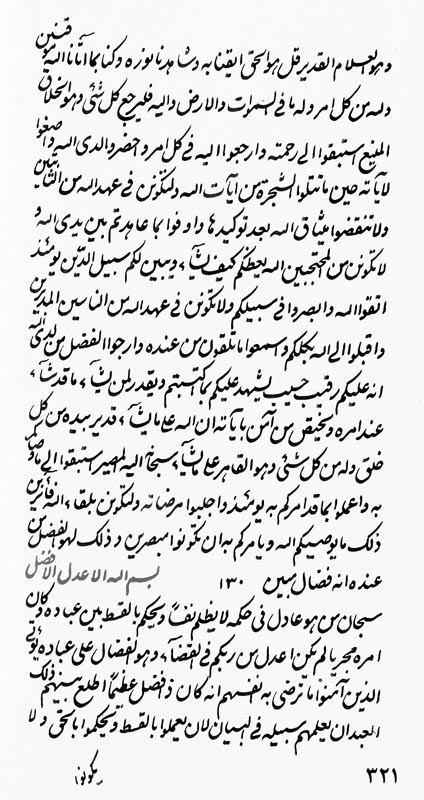 وهو العلام القدير قل هو الحق ايقنا به وشاهدنا نوره وكنا بما آتانا الله موقنين
وله من كل امر وله ما في السموات والارض واليه فليرجع كل شئ وهو الخلاق
المنيع استبقوا الى رحمته وارجعوا اليه في كل امر واحضروا لدى الله واصغوا
لآياته حين ما تتلوا الشجرة من آيات الله ولتكونن في عهد الله من الثابتين
ولا تنقضوا ميثاق الله بعد توكيدها واوفوا بما عاهدتم بين يدى الله و
لا تكونن من المحتجبين الله يعظكم كيف يشاء ويبين لكم سبيل الدين يومئذ
اتقوا الله وابصروا في سبيلكم ولا تكونن في عهد الله من الناسين المدبرين
واقبلوا الى الله بكلكم واسمعوا ما تلقون من عنده وارجوا الفضل من لدى الله
انه عليكم رقيب حسيب يشهد عليكم بما اكتسبتم ويقدر لمن يشاء ما قد شاء
عند امره ويختص من آمن بآياته ان الله على ما يشاء قدير بيده من كل
خلق وله من كل شئ وهو القاهر على ما يشاء سبحانه اليه المصير استبقوا الى ما وصاكم
به واعملوا بما قد امركم به يومئذ واجلبوا مرضاته ولتكونن بلقاء الله فائزين
ذلك ما يوصيكم الله ويامركم به ان تكونوا مبصرين و ذلك لهو الفضل من
عنده انه فضال مبين ١٣٠ بسم الله الاعدل الافضل
سبحان من هو عادل في حكمه لا يظلم نفسا ويحكم بالقسط بين عباده وكان
امره مجريا لم يكن اعدل من ربكم في القضاء وهو لفضال على عباده يؤتى
الذين آمنوا ما ترضى به انفسهم انه كان ذا فضل عظيما اطلع بينهم ذلك
العبد ان يعلمهم سبيله في البيان لان يعملوا بالقسط ويحكموا بالحق ولا
يكونوا
٣٢١